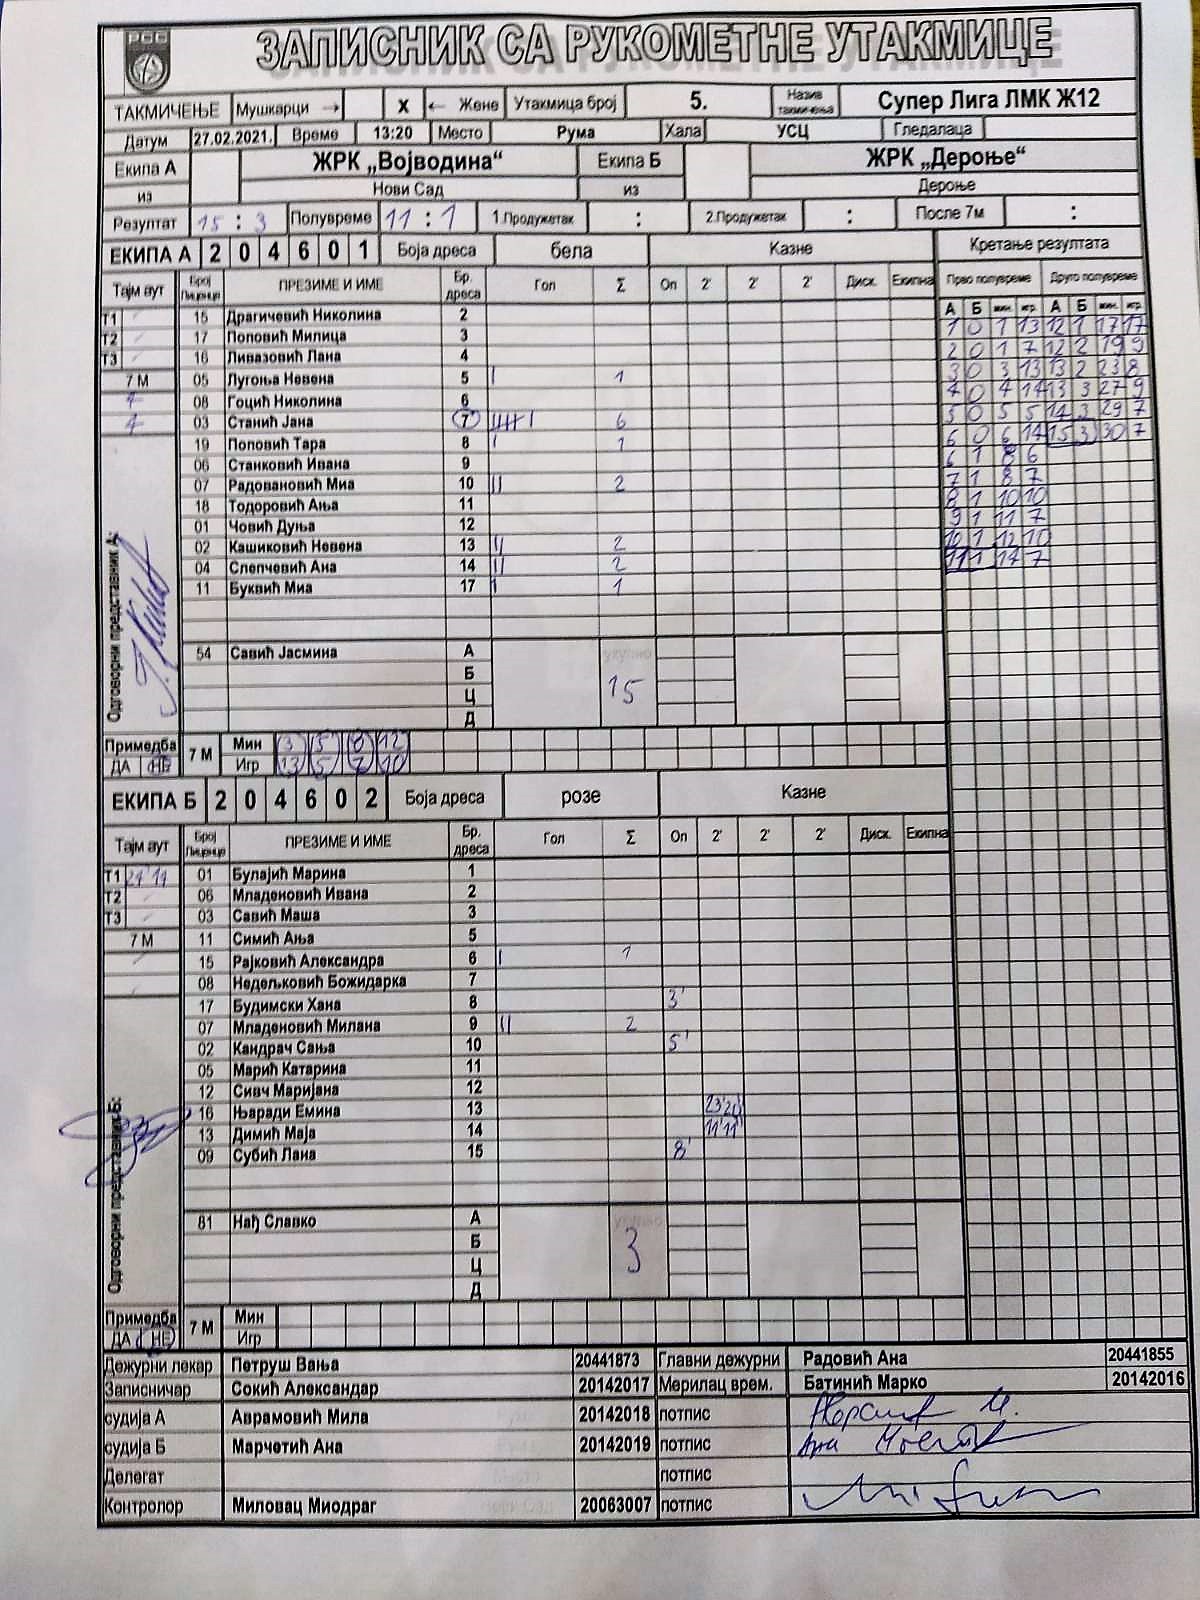 РСС
ЗАПИСНИК СА РУКОМЕТНЕ УТАКМИЦЕ
ТАКМИЧЕЊЕ Мушкарци → X ← Жене Утакмица број 5. Назив такмичења Супер Лига ЛМК Ж12
Датум 27.02.2021. Време 13:20 Место Рума Хала УСЦ Гледалаца
Екипа А ЖРК „Војводина“ Екипа Б ЖРК „Дероње“
из Нови Сад из Дероње
Резултат 15 : 3 Полувреме 11 : 1 1.Продужетак : 2.Продужетак : После 7м :
ЕКИПА А 2 0 4 6 0 1 Боја дреса бела Казне Кретање резултата
Тајм аут Број Лиценце ПРЕЗИМЕ И ИМЕ Бр. дреса Гол Σ Оп 2' 2' 2' Диск. Екипна Прво полувреме Друго полувреме
А Б мин. игр. А Б мин. игр.
Т1 15 Драгичевић Николина 2 1 0 1 13 12 1 17 17
Т2 17 Поповић Милица 3 2 0 1 7 12 2 19 9
Т3 16 Ливазовић Лана 4 3 0 3 13 13 2 23 8
7 М 05 Лугоња Невена 5 I 1 4 0 4 14 13 3 27 9
4 08 Гоцић Николина 6 5 0 5 5 14 3 29 7
4 03 Станић Јана 7 IIIII I 6 6 0 6 14 15 3 30 7
19 Поповић Тара 8 I 1 6 1 8 6
06 Станковић Ивана 9 7 1 8 7
07 Радовановић Миа 10 II 2 8 1 10 10
18 Тодоровић Ања 11 9 1 11 7
01 Човић Дуња 12 10 1 12 10
02 Кашиковић Невена 13 II 2 11 1 14 7
04 Слепчевић Ана 14 II 2
11 Буквић Миа 17 I 1
Одговорни представник А:
54 Савић Јасмина А укупно
Б 15
Ц
Д
Примедба ДА НЕ 7 М Мин 3 5 8 12
Игр 13 5 7 10
ЕКИПА Б 2 0 4 6 0 2 Боја дреса розе Казне
Тајм аут Број Лиценце ПРЕЗИМЕ И ИМЕ Бр. дреса Гол Σ Оп 2' 2' 2' Диск. Екипна
Т1 01 Булајић Марина 1
Т2 06 Младеновић Ивана 2
Т3 03 Савић Маша 3
7 М 11 Симић Ања 5
15 Рајковић Александра 6 I 1
08 Недељковић Божидарка 7
17 Будимски Хана 8 3'
07 Младеновић Милана 9 II 2
02 Кандрач Сања 10 5'
05 Марић Катарина 11
12 Сивч Маријана 12
16 Њаради Емина 13
13 Димић Маја 14 11'11'
09 Субић Лана 15 8'
Одговорни представник Б:
81 Нађ Славко А укупно
Б 3
Ц
Д
Примедба ДА НЕ 7 М Мин
Игр
Дежурни лекар Петруш Вања 20441873 Главни дежурни Радовић Ана 20441855
Записничар Сокић Александар 20142017 Мерилац врем. Батинић Марко 20142016
судија А Аврамовић Мила 20142018 потпис
судија Б Марчетић Ана 20142019 потпис
Делегат потпис
Контролор Миловац Миодраг 20063007 потпис